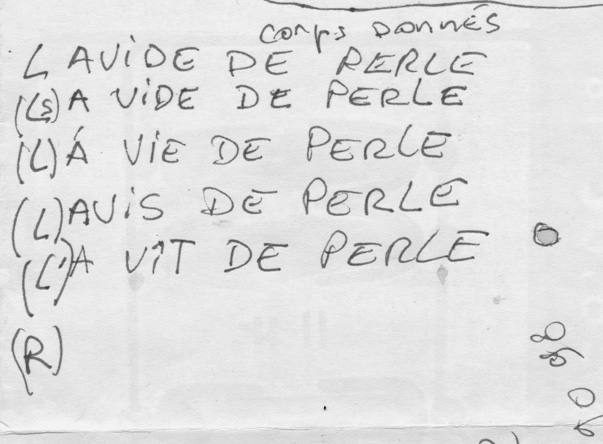 corps DONNÉS
L AViDE DE PERLE
(Ls) A ViDE DE PERLE
(L) À ViE DE PERLE
(L) AViS DE PERLE
(L') A ViT DE PERLE
(R)